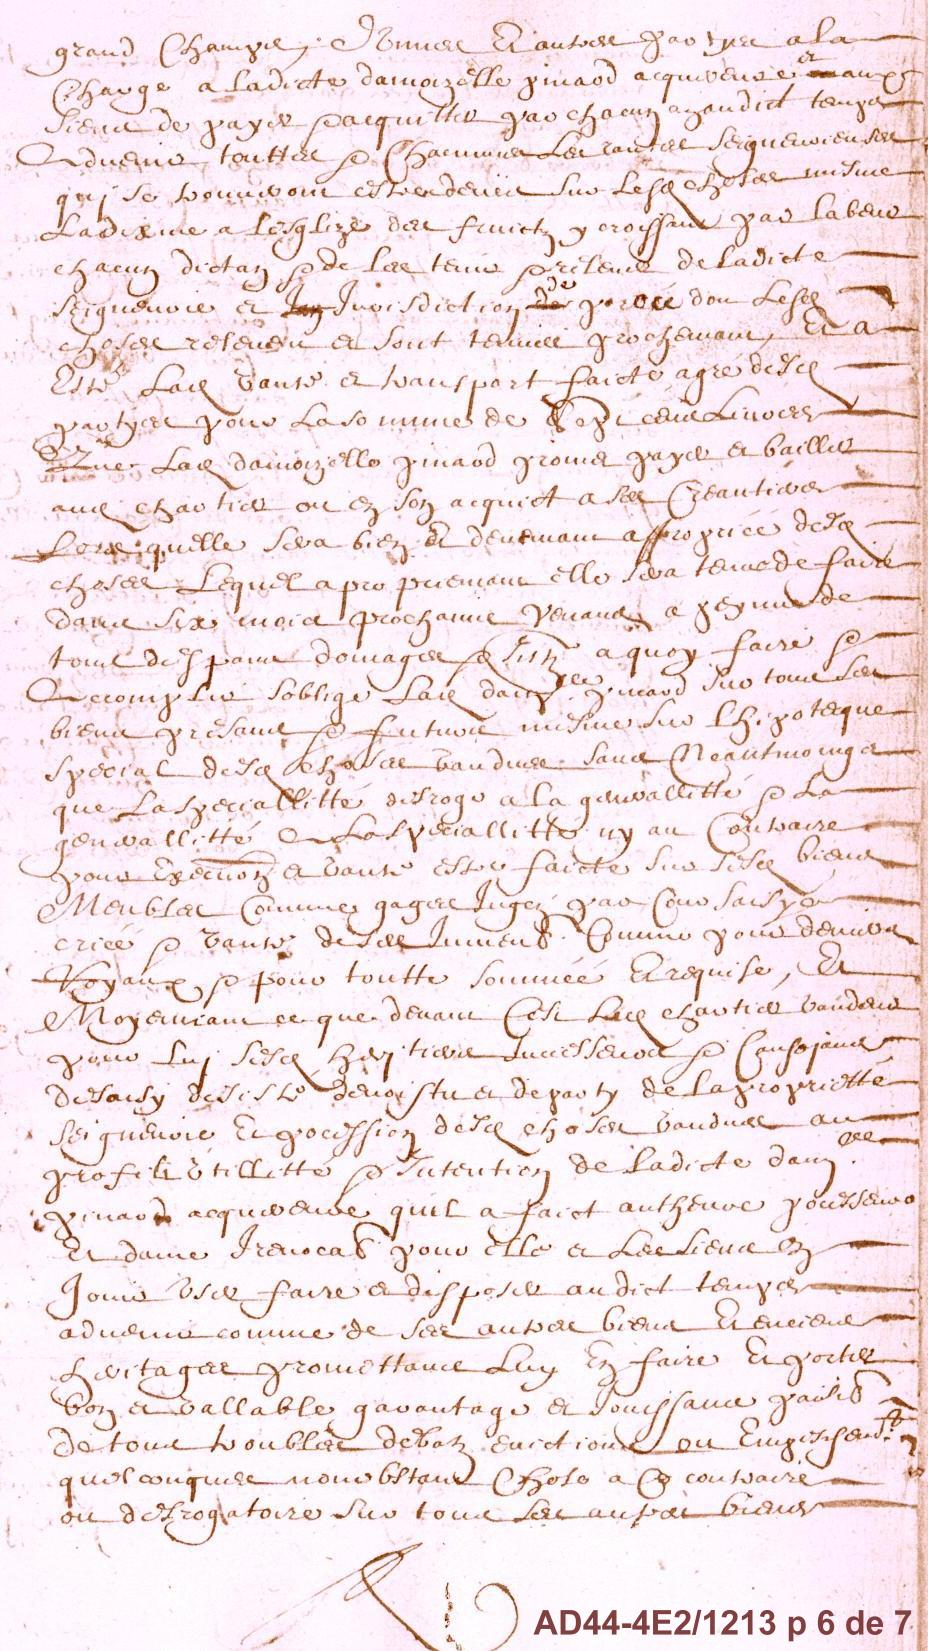 grand Champs, Donnee Et autres partyes a la
Charge a ladicte damoizelle pinard acquereure et aux
siens de payer & acquitter par chacun an audict temps
Advenir touttes & Chacunnes Les rantes seigneurienses
quj se trouveront estre deues sur lesd choses mesme
La dixme a l'esglize des fruictz y croissant par labeur
chacun dictan & de les tenir & relever de ladicte
seigneurie et Jurisdiction de dont Lesd
choses relevent et sont tenues prochemant, Et a
Esté Lad vante et transport faicte a gré desd
partyes pour la somme de Sept cent Livres
que Lad damoizelle pinard promet payer et bailler
aud chartier ou en son acquict a ses Creantiers
Lors quelle sera bien Et deuemant appropriée desd
choses Lequel apropriemant elle sera tenue de faire
dans six mois prochains venans a peynne de
tous despans domages & Jnthz a quoy faire &
Accomplir soblige Lad damlle pinard sur tous ses
biens presans & futurs mesme sur Lhipoteque
special desd choses vandues sans Neantmoings
que La speciallitté desroge a la generallitté & La
generallitté A La speciallitté ny au Contraire
pour Execution et vante estre faicte sur sesd biens
Meubles Comme gages Jugez par Cour saisye
criée & vante de ses Jmmeubles Comme pour deniers
Royaux & pour toutte sommée Et requise, Et
Moyennant ce que devant Cest Led chartier vandeur
pour luj sesd heritiers successeurs & Causajans
desaisy desisté devestu et departy de la propriette
seigneurie Et pocession desd choses vandues au
profit Utillitté & Jntention de ladicte damlle
pinard acquereure quil a faict autheure pocesseure
Et dame Jrevocable pour elle et Les siens En
Jouir User faire et disposer audict temps
advenir comme de ses autres biens Et enciens
heritages promettant Luy En faire Et porter
bon et vallable garantage et Jouissance paisible
de tous troubles debatz evictions ou Empeschemts
quelconques nonobstant Chose a Ce contraire
ou desrogatoire sur tous ses autres biens
AD44-4E2/1213 p 6 de 7